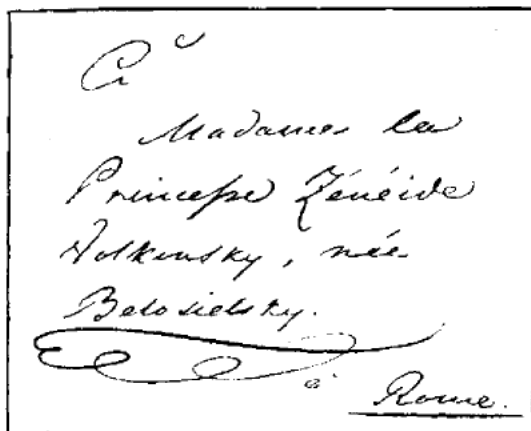 À
Madame la
Princesse Zénéide
Volkonsky, née
Belosielsky.
à
Rome.